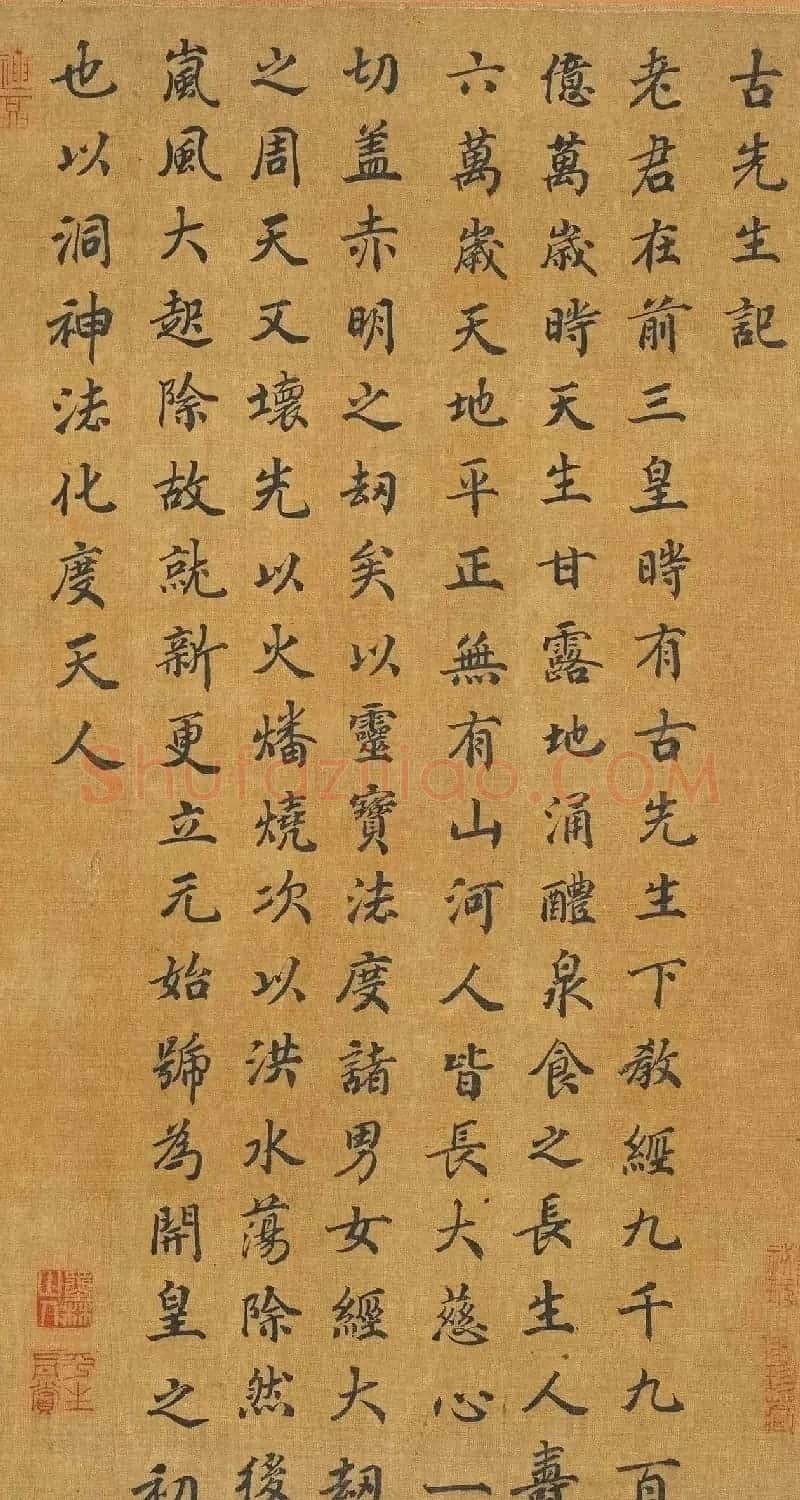 古先生記
老君在前三皇時有古先生下教經九千九百
億萬歲時天生甘露地涌醴泉食之長生人壽
六萬歲天地平正無有山河人皆長大慈心一
切蓋赤明之劫矣以靈寶法度諸男女經大劫
之周天又壞先以火燔燒次以洪水蕩除然後
嵐風大起除故就新更立元始號為開皇之初
也以洞神法化度天人
shufaziliao.COM